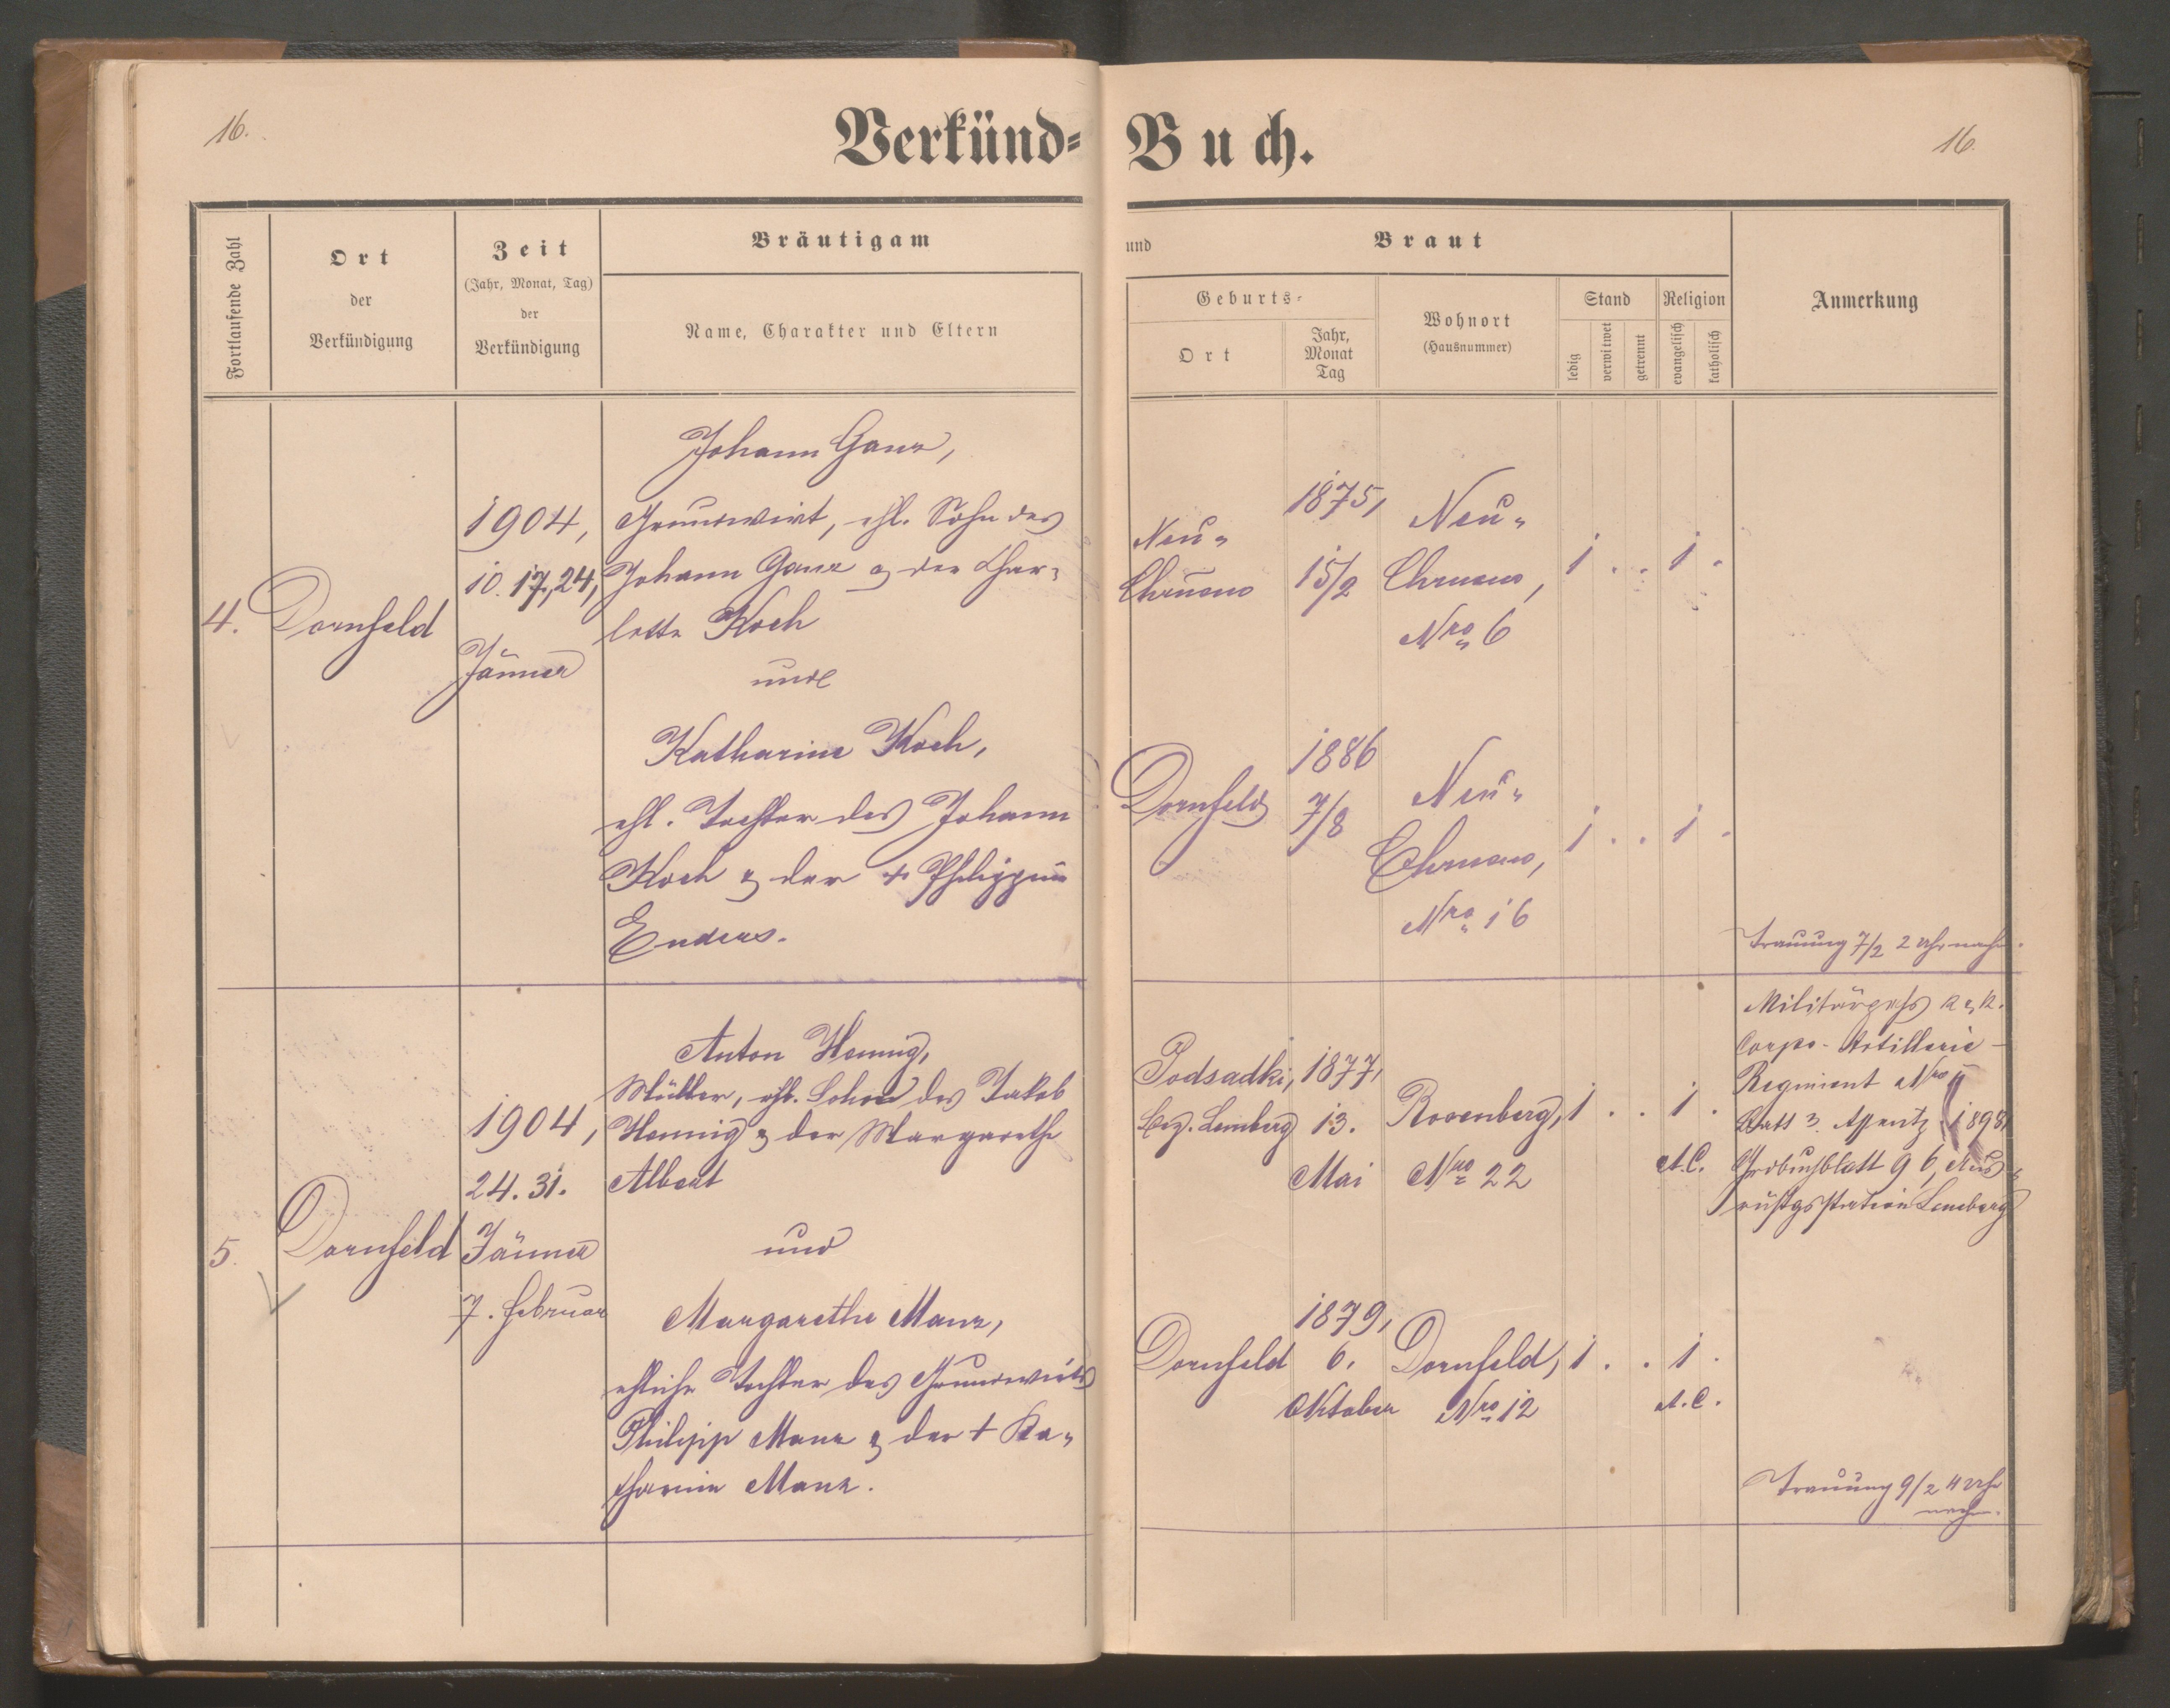 16.
Verkünd=
Fortlaufende Zahl
Ort
der
Verkündigung
Zeit
(Jahr, Monat, Tag)
der
Verkündigung
Bräutigam
Name, Charakter und Eltern
4.
Dornfeld
1904,
10. 17, 24,
Jänner
Johann Ganz,
Grundwirt, ehl. Sohn des
Johann Ganz & der Char-
lotte Koch
und
Katharine Koch,
ehl. Tochter des Johann
Koch & der + Philippine
Enders.
5.
Dornfeld
1904,
24. 31.
Jänner
7. Februar
Anton Hennig,
Müller, ehl. Sohn des Jakob
Hennig & der Margarethe
Albert
und
Margarethe Manz,
eheliche Tochter des Grundwirts
Philipp Manz & der + Ka-
tharine Manz.
Buch.
16.
und
Braut
Geburts-
Ort
Jahr,
Monat
Tag
Wohnort
(Hausnummer)
Stand
ledig
verwitwet
getrennt
Religion
evangelisch
katholisch
Anmerkung
Neu-
Chrusno
1875,
15/2
Neu-
Chrusno,
Nro 6
1 . . 1 .
Dornfeld
1886
7/8
Neu-
Chrusno,
Nro 16
1 . . 1 .
Trauung 7/2 2 Uhr nachm.
Podsadki,
Bez. Lemberg
1877,
13.
Mai
Rosenberg,
Nro 22
1 . . 1 .
A.C.
Militärpass k & k.
Corps-Artillerie-
Regiment Nro
3. Assentj. 1898,
Grdbuchblatt 96, Aus-
rüstgsstation Lemberg
Dornfeld
1879,
6.
Oktober
Dornfeld,
Nro 12
1 . . 1 .
A.C.
Trauung 9/2 4 Uhr
nachm.